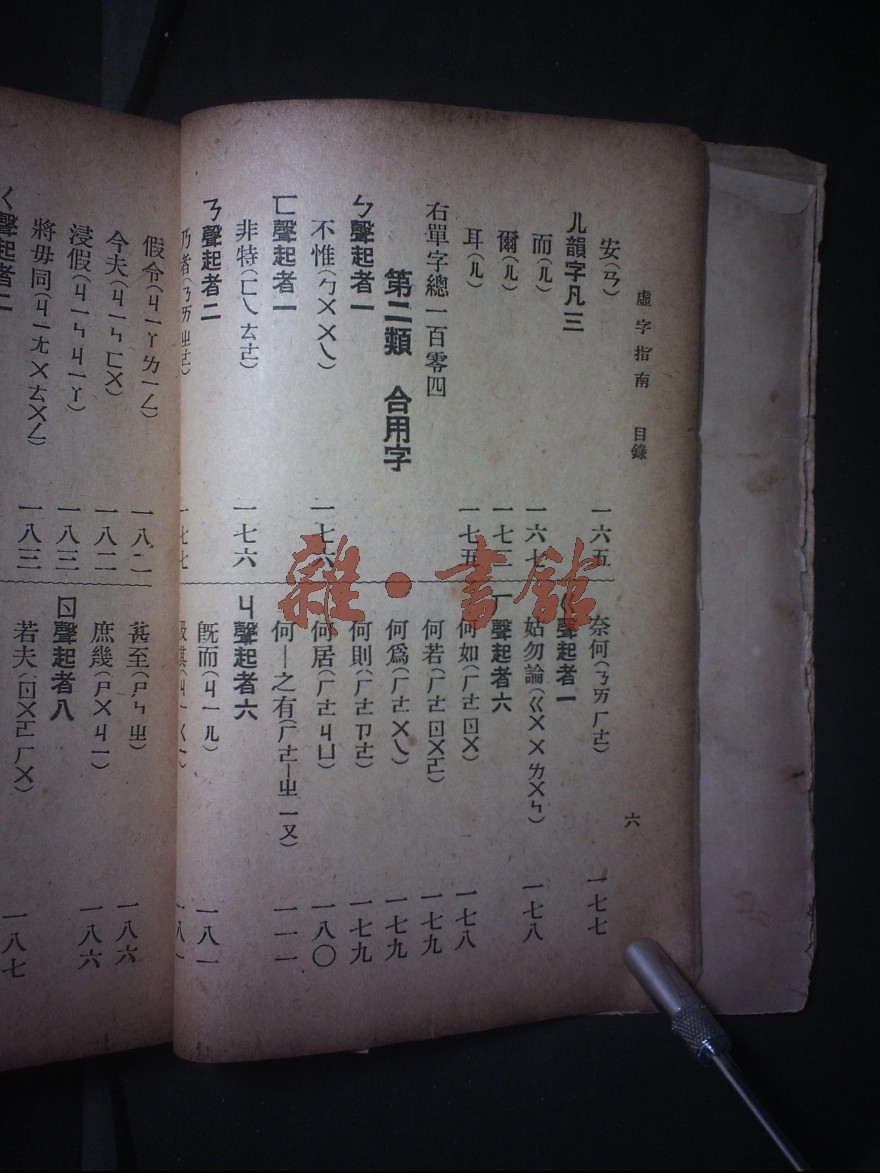 虛字指南 目錄
六
安(ㄢ) 一六五
ㄦ韻字凡三
而(ㄦ) 一六七
爾(ㄦ) 一七三
耳(ㄦ) 一七五
右單字總一百零四
第二類 合用字
ㄅ聲起者一
不惟(ㄅㄨ ㄨㄟ) 一七六
ㄈ聲起者一
非特(ㄈㄟ ㄊㄜ) 一七六
ㄋ聲起者二
乃者(ㄋㄞ ㄓㄜ) 一七七
奈何(ㄋㄞ ㄏㄜ) 一七七
ㄍ聲起者一
姑勿論(ㄍㄨ ㄨ ㄌㄨㄣ) 一七八
ㄏ聲起者六
何如(ㄏㄜ ㄖㄨ) 一七八
何若(ㄏㄜ ㄖㄨㄛ) 一七九
何爲(ㄏㄜ ㄨㄟ) 一七九
何則(ㄏㄜ ㄗㄜ) 一七九
何居(ㄏㄜ ㄐㄩ) 一八〇
何—之有(ㄏㄜ—ㄓ ㄧㄡ) 一一一
ㄐ聲起者六
既而(ㄐㄧ ㄦ) 一八一
假令(ㄐㄧㄚ ㄌㄧㄥ) 一八二
今夫(ㄐㄧㄣ ㄈㄨ) 一八二
浸假(ㄐㄧㄣ ㄐㄧㄚ) 一八三
將毋同(ㄐㄧㄤ ㄨ ㄊㄨㄥ) 一八三
聲起者二
甚至(ㄕㄣ ㄓ) 一八六
庶幾(ㄕㄨ ㄐㄧ) 一八六
ㄖ聲起者八
若夫(ㄖㄨㄛ ㄈㄨ) 一八七
雜·書館